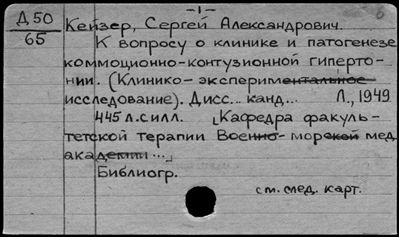 -1-
Д 50
65
Кейзер, Сергей Александрович.
К вопросу о клинике и патогенезе
коммоционно-контузионной гиперто-
нии. (Клинико-экспериментальное
исследование). Дисс... канд... Л., 1949
445 л. с илл. [Кафедра факуль-
тетской терапии Военно-морской мед.
академии ...]
Библиогр.
см. след. карт.